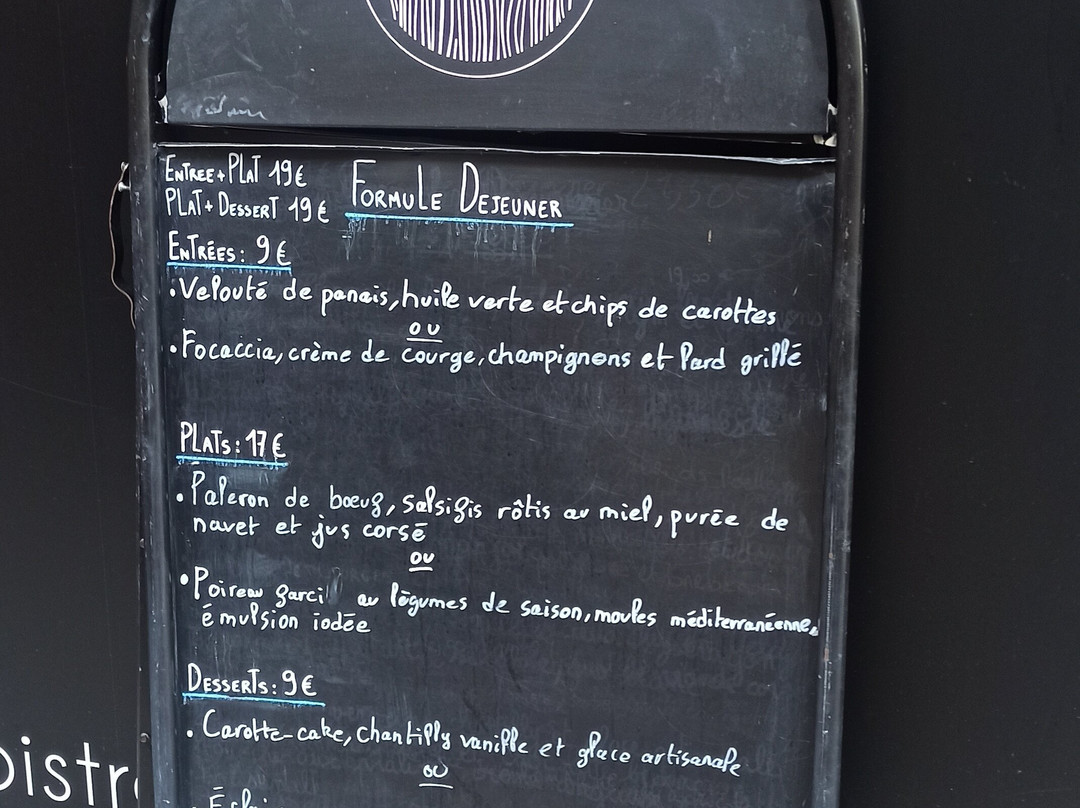 ENTREE + PLAT 19€
PLAT + DESSERT 19€
FORMULE DEJEUNER
ENTRÉES : 9€
• Velouté de panais, huile verte et chips de carottes
ou
• Focaccia, crème de courge, champignons et lard grillé
PLATS : 17€
• Paleron de bœuf, salsifis rôtis au miel, purée de
navet et jus corsé
ou
• Poireau farci au légumes de saison, moules méditerranéenne,
émulsion iodée
DESSERTS : 9€
• Carotte-cake, chantilly vanille et glace artisanale
ou